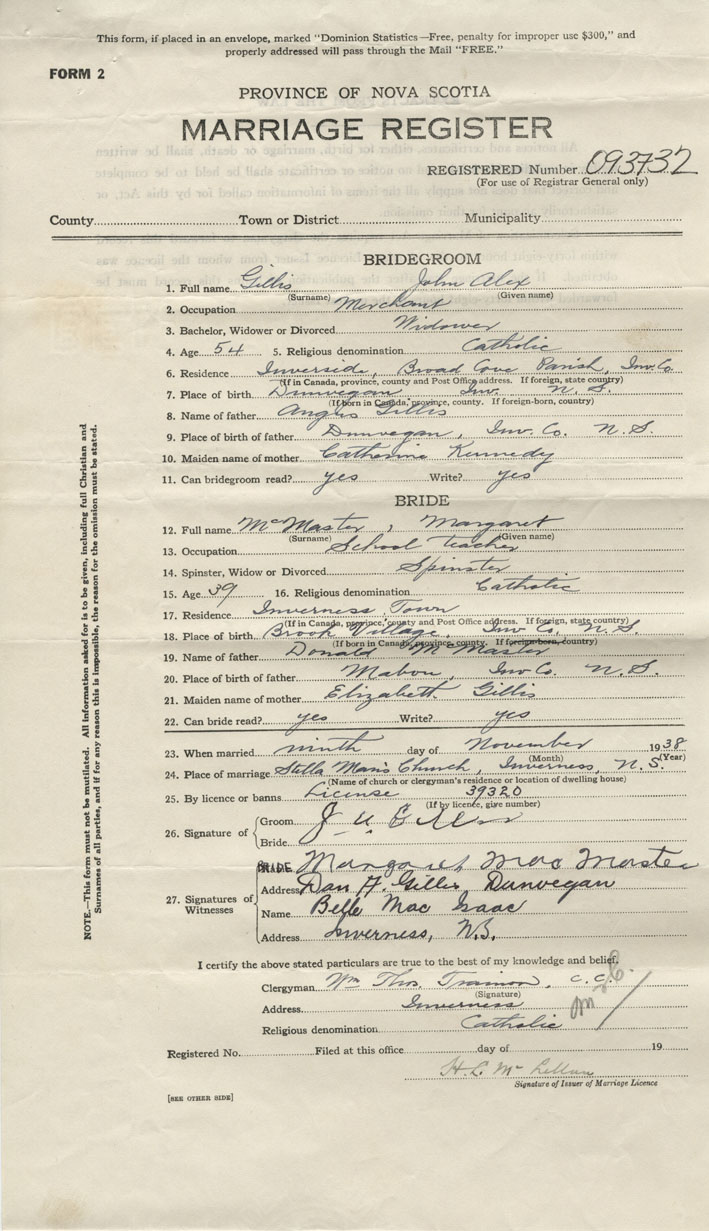 This form, if placed in an envelope, marked "Dominion Statistics—Free, penalty for improper use $300," and
properly addressed will pass through the Mail "FREE."
FORM 2
PROVINCE OF NOVA SCOTIA
MARRIAGE REGISTER
REGISTERED Number 093732
(For use of Registrar General only)
County Town or District Municipality
BRIDEGROOM
1. Full name Gillis John Alex
(Surname) (Given name)
2. Occupation Merchant
3. Bachelor, Widower or Divorced Widower
4. Age 54 5. Religious denomination Catholic
6. Residence Inverside, Broad Cove Parish, Inv. Co.
(If in Canada, province, county and Post Office address. If foreign, state country)
7. Place of birth Dunvegan Inv. N. S.
(If born in Canada, province, county. If foreign-born, country)
8. Name of father Angus Gillis
9. Place of birth of father Dunvegan, Inv. Co. N. S.
10. Maiden name of mother Catherine Kennedy
11. Can bridegroom read? yes Write? yes
BRIDE
12. Full name McMaster, Margaret
(Surname) (Given name)
13. Occupation School Teacher
14. Spinster, Widow or Divorced Spinster
15. Age 39 16. Religious denomination Catholic
17. Residence Inverness Town
(If in Canada, province, county and Post Office address. If foreign, state country)
18. Place of birth Brook Village, Inv Co. N. S.
(If born in Canada, province, county. If foreign-born, country)
19. Name of father Donald McMaster
20. Place of birth of father Mabou, Inv Co. N. S.
21. Maiden name of mother Elizabeth Gillis
22. Can bride read? yes Write? yes
23. When married ninth day of November 1938
(Month) (Year)
24. Place of marriage Stella Maris Church, Inverness, N. S.
(Name of church or clergyman's residence or location of dwelling house)
25. By licence or banns License 39320
(If by licence, give number)
26. Signature of Groom J A Gillis
Bride
BRIDE Margaret MacMaster
27. Signatures of Witnesses
Address Dan A. Gillis Dunvegan
Name Belle MacIsaac
Address Inverness, N.S.
I certify the above stated particulars are true to the best of my knowledge and belief.
Clergyman Wm Thos. Trainor, C. C.
(Signature)
Address Inverness
Religious denomination Catholic
Registered No. Filed at this office day of 19
H. L. McLellan
Signature of Issuer of Marriage Licence
[SEE OTHER SIDE]
NOTE.—This form must not be mutilated. All information asked for is to be given, including full Christian and
Surnames of all parties, and if for any reason this is impossible, the reason for the omission must be stated.